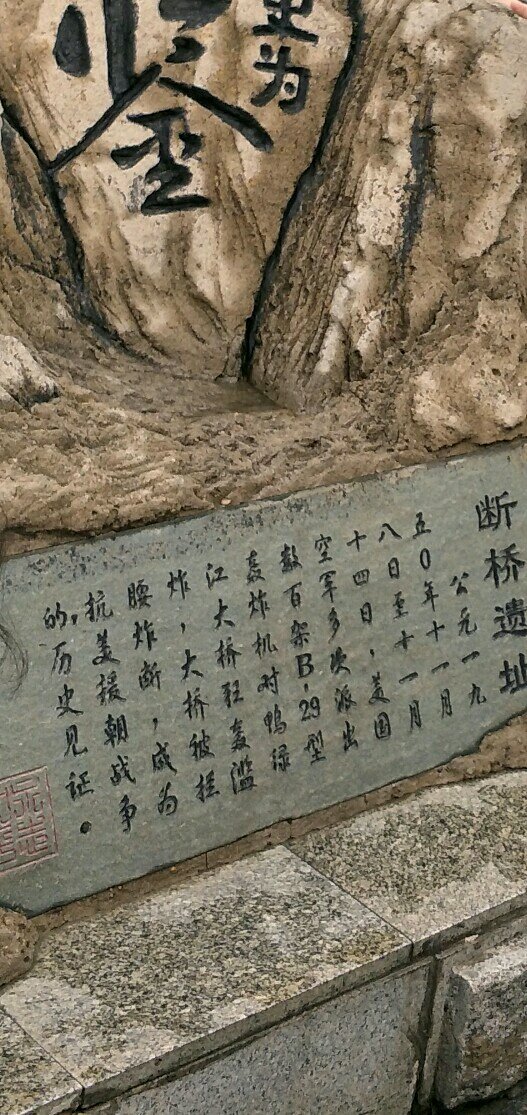 为
鉴
断桥遗址
公元一九
五0年十一月
八日至十一月
十四日，美国
空军多次派出
数百架B-29型
轰炸机对鸭绿
江大桥狂轰滥
炸，大桥被拦
腰炸断，成为
抗美援朝战争
的，历史见证。